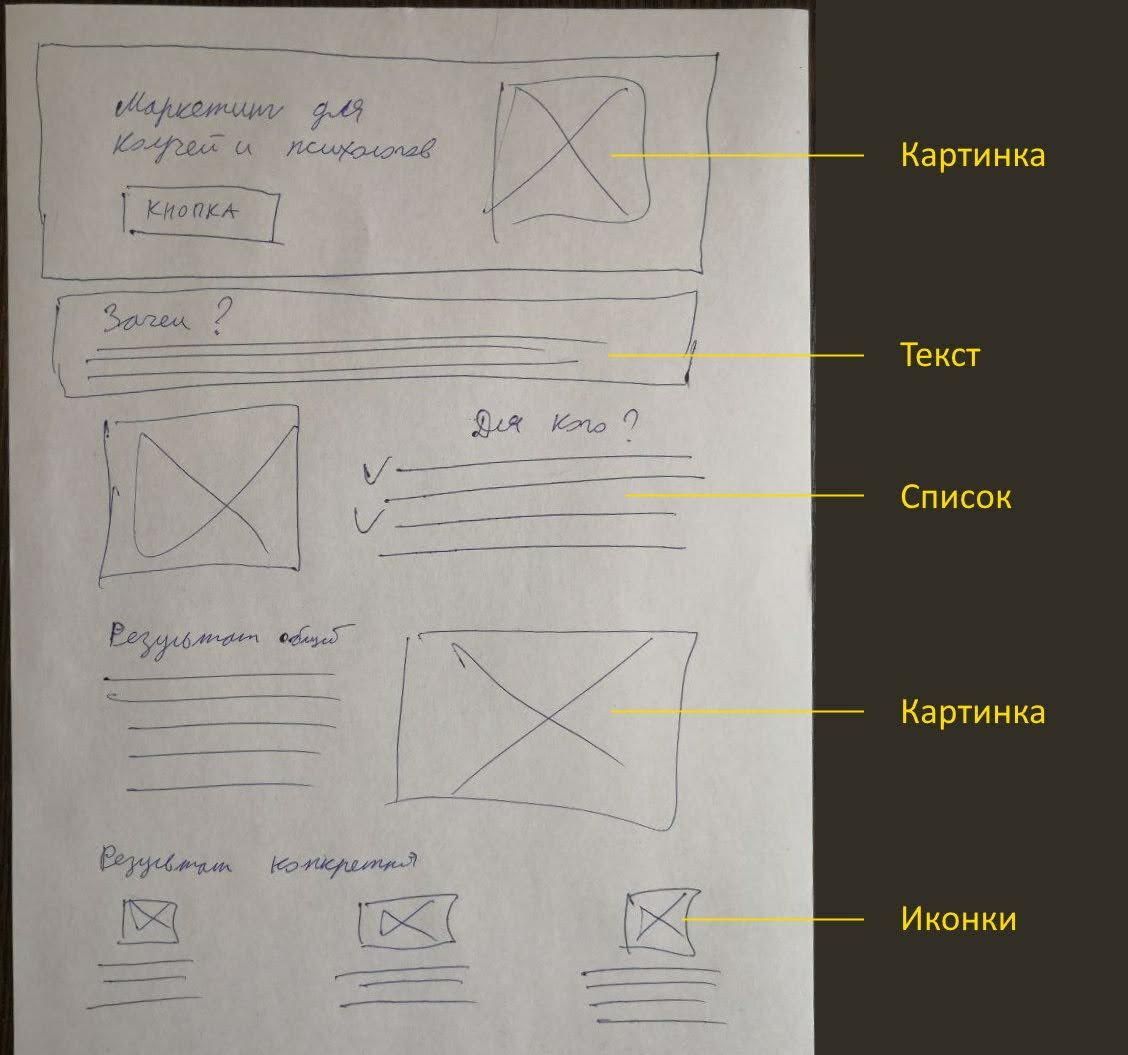 Маркетинг для
коучей и психологов
КНОПКА
Картинка
Зачем ?
Текст
Для кого ?
Список
Результат общий
Картинка
Результат конкретный
Иконки